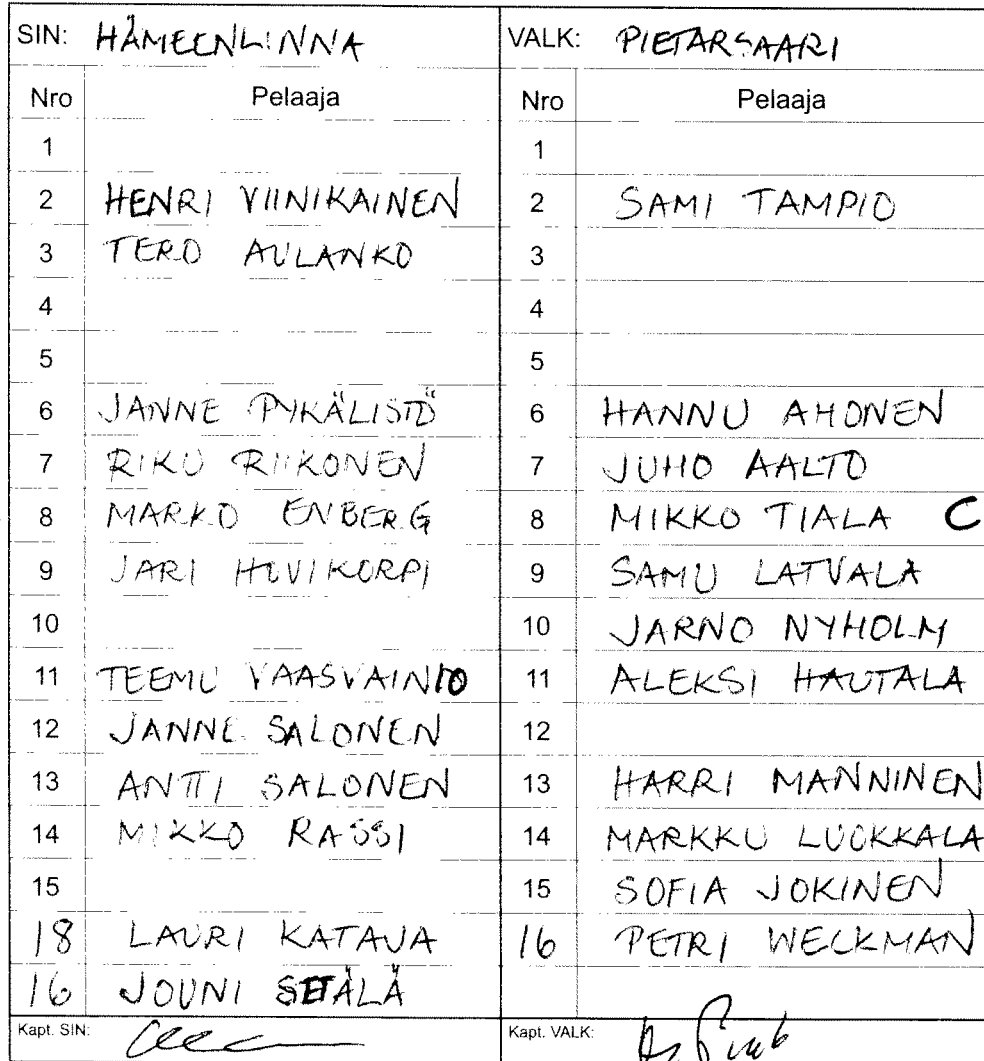 SIN: HÄMEENLINNA
Nro Pelaaja
1
2 HENRI VIINIKAINEN
3 TERO AULANKO
4
5
6 JANNE PYKÄLISTÖ
7 RIKU RIIKONEN
8 MARKO ENBERG
9 JARI HOVIKORPI
10
11 TEEMU VAASVAINIO
12 JANNE SALONEN
13 ANTTI SALONEN
14 MIKKO RASSI
15
18 LAURI KATAJA
16 JOUNI SETÄLÄ
Kapt. SIN:
VALK: PIETARSAARI
Nro Pelaaja
1
2 SAMI TAMPIO
3
4
5
6 HANNU AHONEN
7 JUHO AALTO
8 MIKKO TIALA C
9 SAMU LATVALA
10 JARNO NYHOLM
11 ALEKSI HAUTALA
12
13 HARRI MANNINEN
14 MARKKU LUOKKALA
15 SOFIA JOKINEN
16 PETRI WECKMAN
Kapt. VALK: